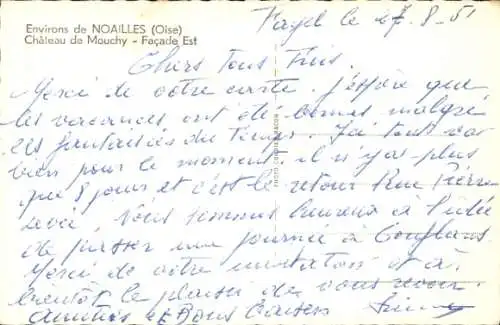 Environs de NOAILLES (Oise)
Château de Mouchy - Façade Est
le 27-8-51
Chers tous trois.
Merci de votre carte. J'espère que
les vacances ont été bonnes malgré
les fantaisies du temps. Ici tout va
bien pour le moment. il n'y a plus
que 8 jours et c'est le retour Rue Pierre
Nous sommes heureux à l'idée
de passer une journée à Conflans
Merci de votre invitation et à
bientôt le plaisir de vous revoir.
Amitiés et Bons Baisers